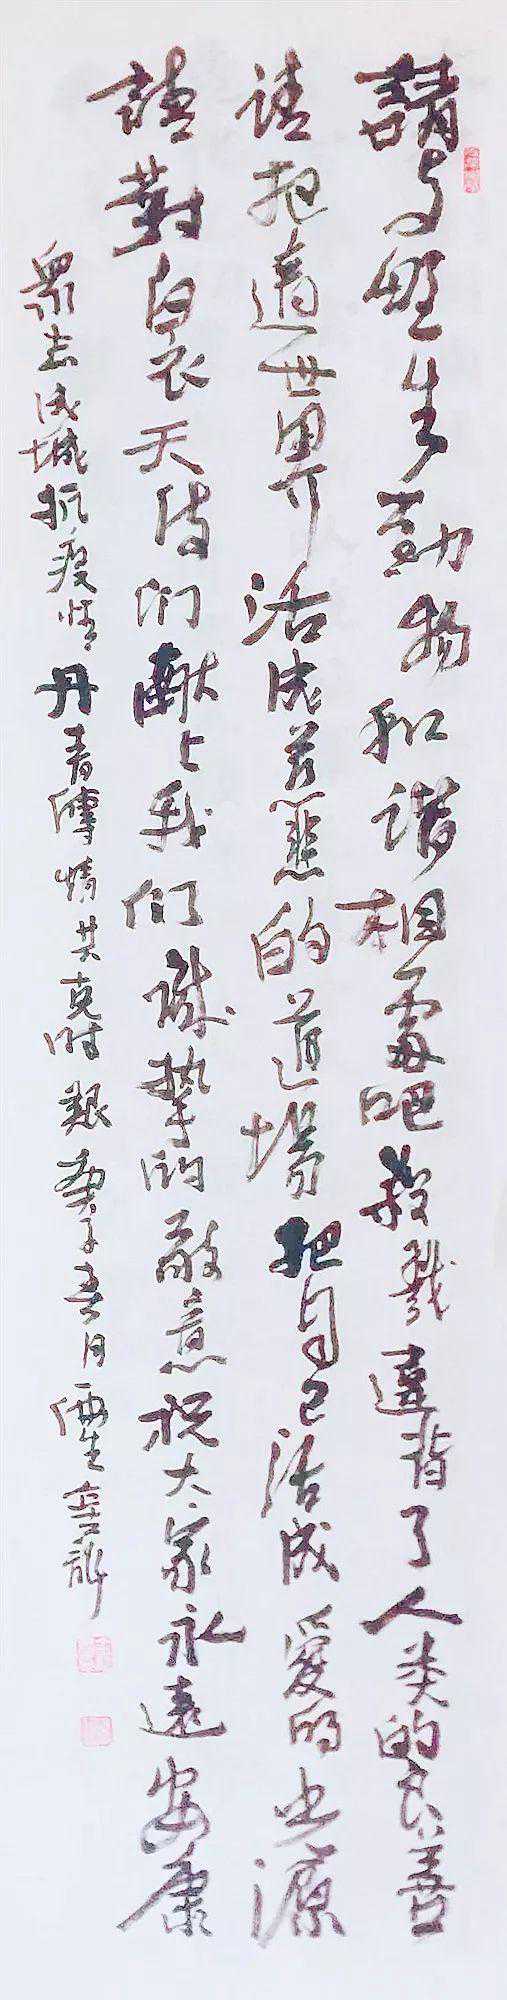 請與野生動物和谐相處吧殺戮違背了人类的良善
请把這世界活成慈悲的道場把自己活成愛的出源
請對白衣天使们献上我们誠挚的敬意祝大家永遠安康
衆志成城抗疫情丹青傳情共克时艱庚子春月